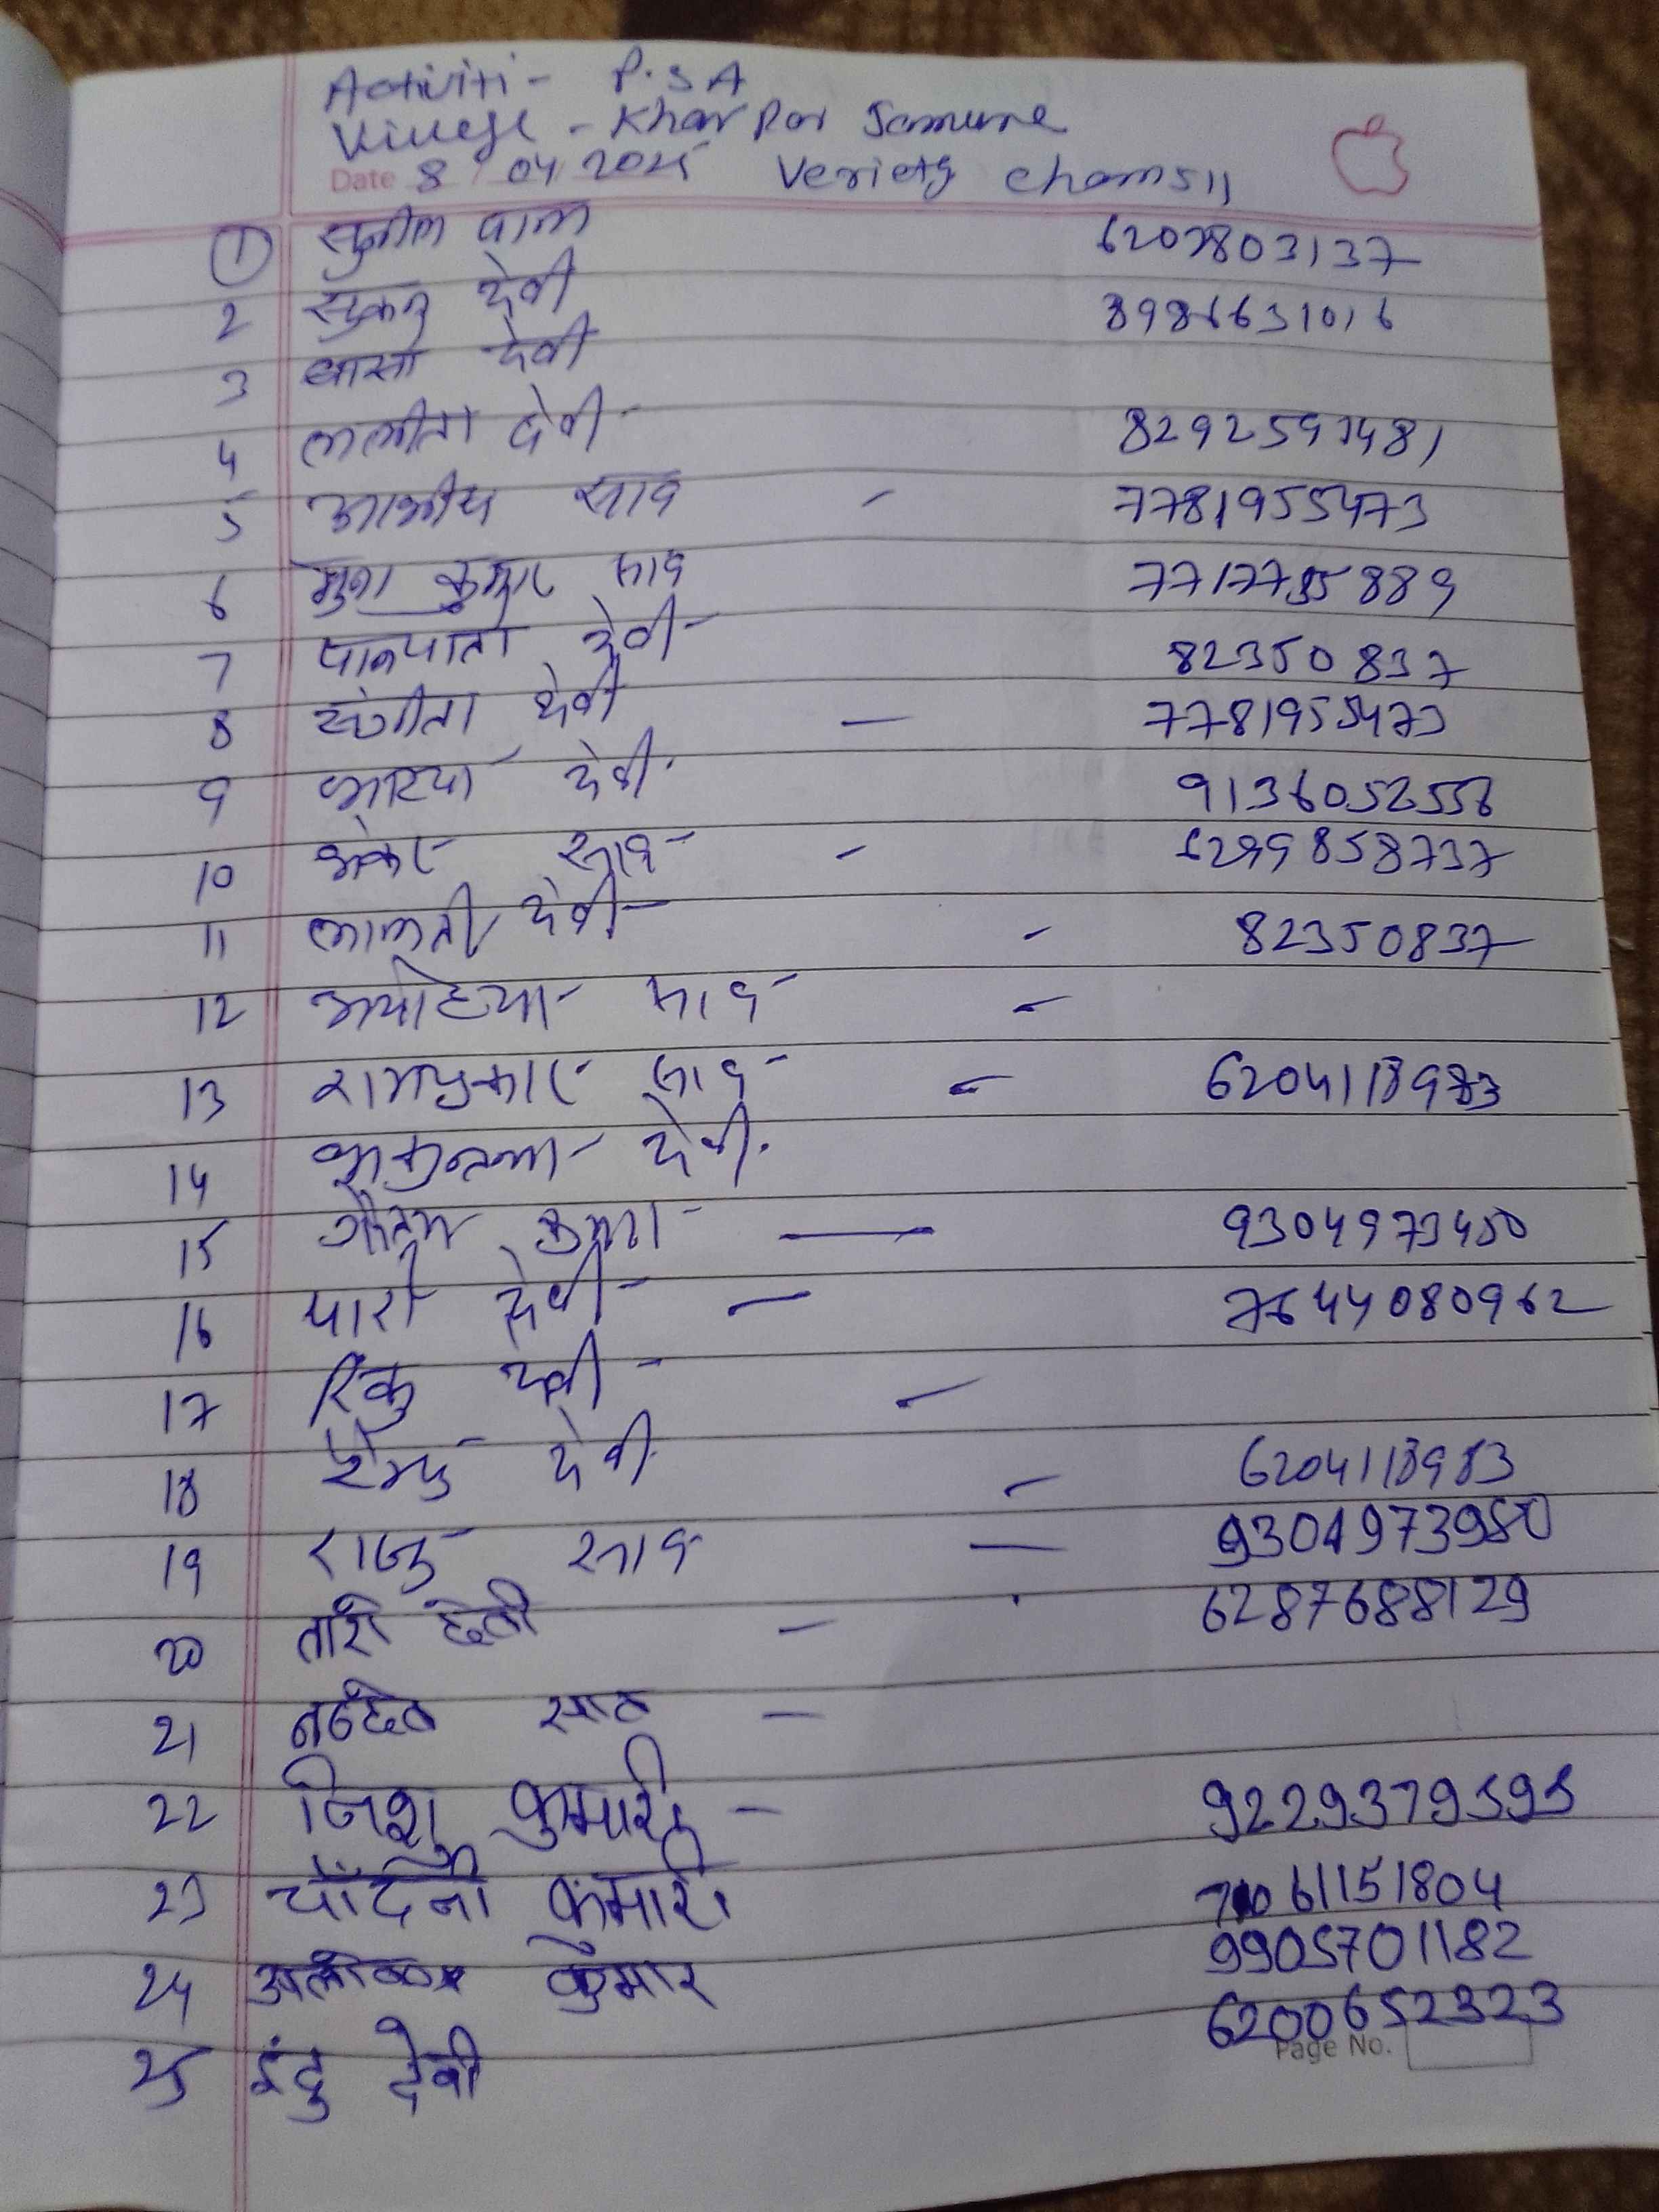 Activiti - P.S A
Village - Kharpar Jamune
Date 8 04 2025 Veriety chamsıı
① सुनील पाल 6207803137
2 सुकनु देवी 8986631016
3 देवी
4 ललीता देवी - 8292591481
5 आशीष साव - 7781955473
6 मुन्ना कुमार साव 7717735889
7 पानपाती देवी - 82350837
8 संगीता देवी — 7781955473
9 देवी 9136052556
10 शंकर साव - 6299858737
11 मालती देवी - 82350837
12 अयोध्या साव -
13 रामप्रकार साव - 6204118983
14 शकुन्तला देवी
15 गौतम कुमार — 9304973450
16 पारो देवी - 7644080962
17 रिंकु देवी -
18 देवी - 6204118983
19 राजु साव — 9304973980
20 तारी देवी - 6287688129
21 साव -
22 निशु कुमारी - 9229379595
23 चाँदनी कुमारी 7061151804
24 कुमार 9905701182
25 इंदु देवी 6200652323
Page No.